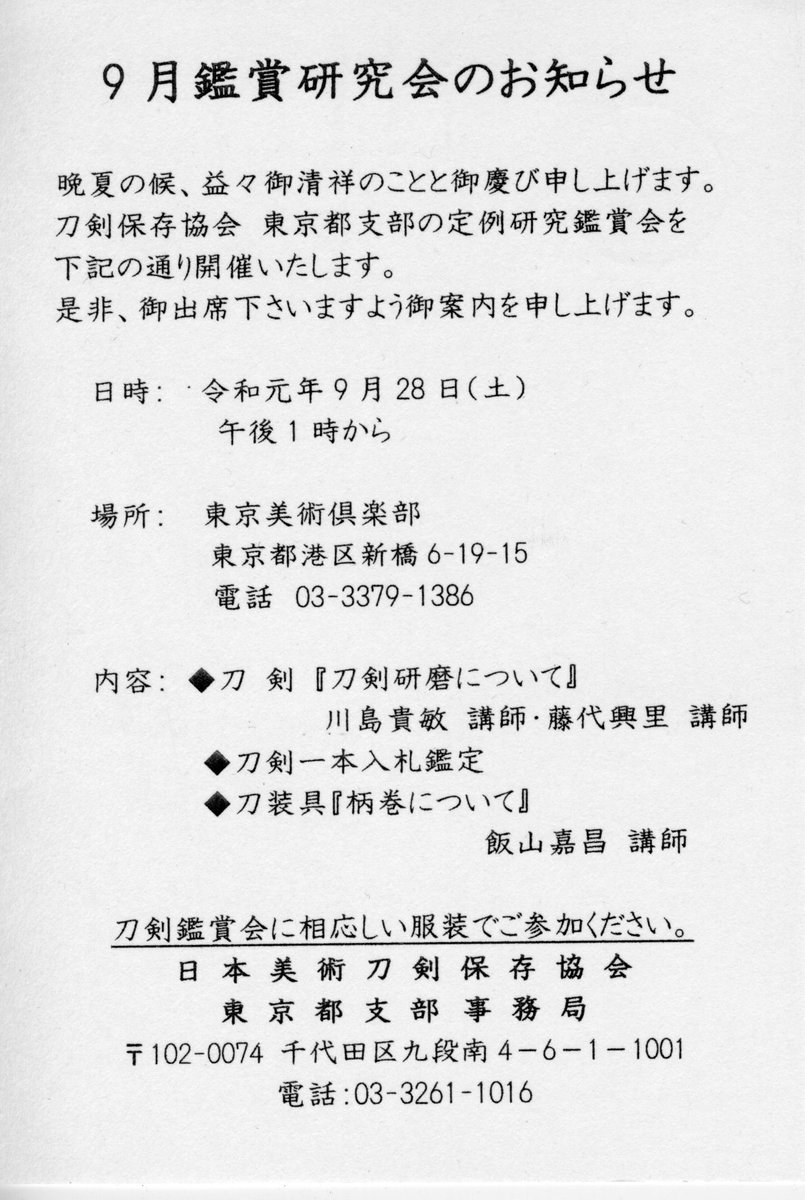 9月鑑賞研究会のお知らせ
晩夏の候、益々御清祥のことと御慶び申し上げます。
刀剣保存協会 東京都支部の定例研究鑑賞会を
下記の通り開催いたします。
是非、御出席下さいますよう御案内を申し上げます。
日時: 令和元年9月28日(土)
午後1時から
場所: 東京美術倶楽部
東京都港区新橋6-19-15
電話 03-3379-1386
内容: ◆刀 剣 『刀剣研磨について』
川島貴敏 講師・藤代興里 講師
◆刀剣一本入札鑑定
◆刀装具『柄巻について』
飯山嘉昌 講師
刀剣鑑賞会に相応しい服装でご参加ください。
日本美術刀剣保存協会
東京都支部事務局
〒102-0074 千代田区九段南4-6-1-1001
電話:03-3261-1016